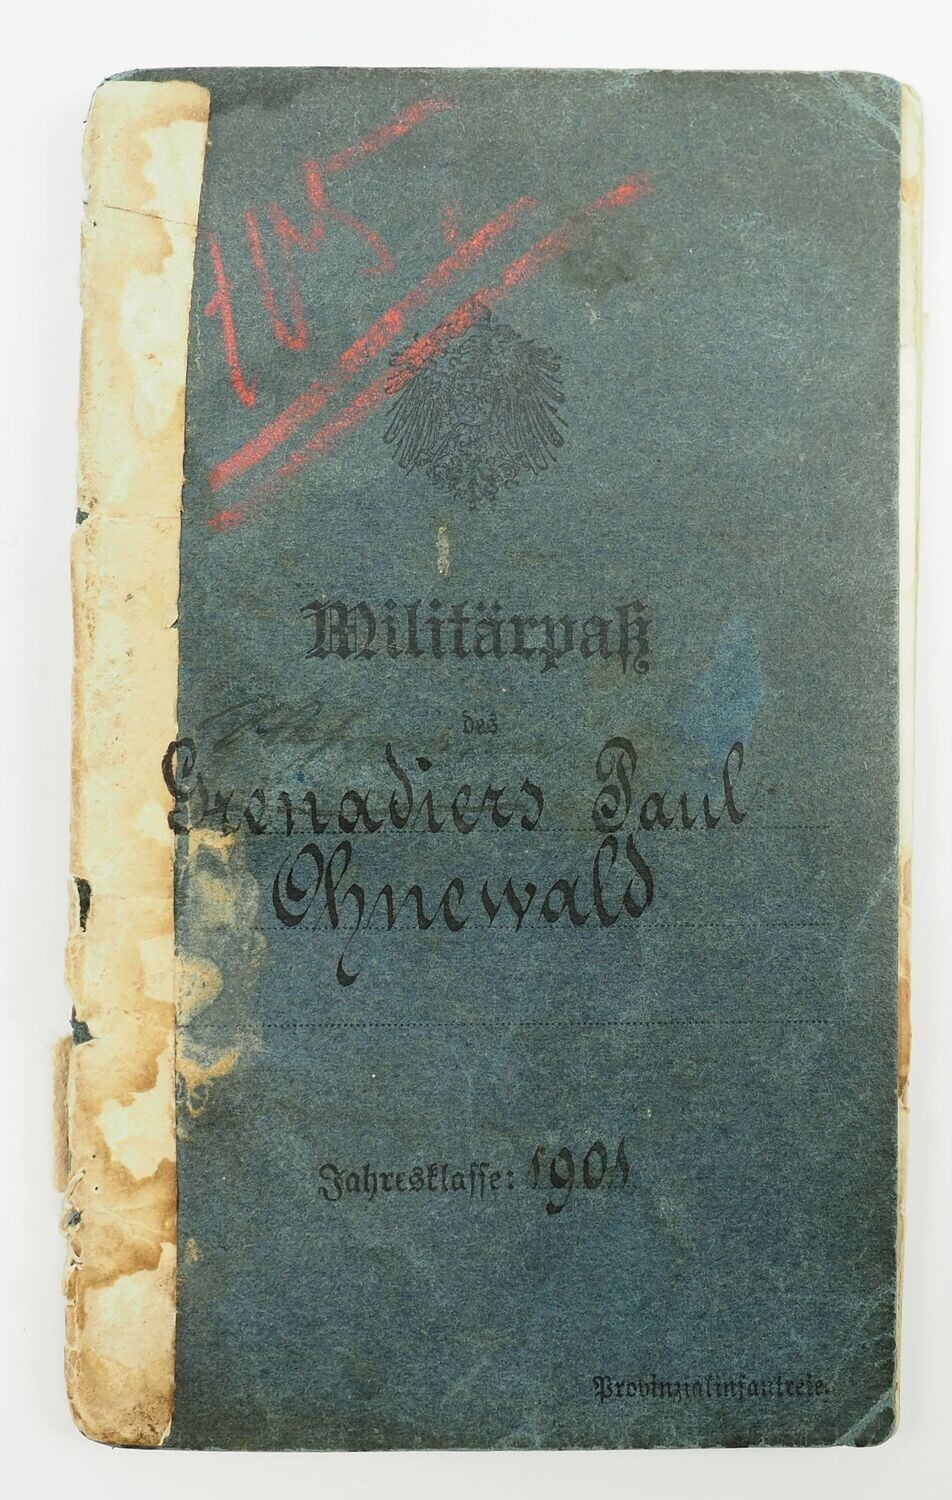 Militärpaß
des
Grenadiers Paul
Ohnewald
Jahresklasse: 1901
Provinzialinfanterie.